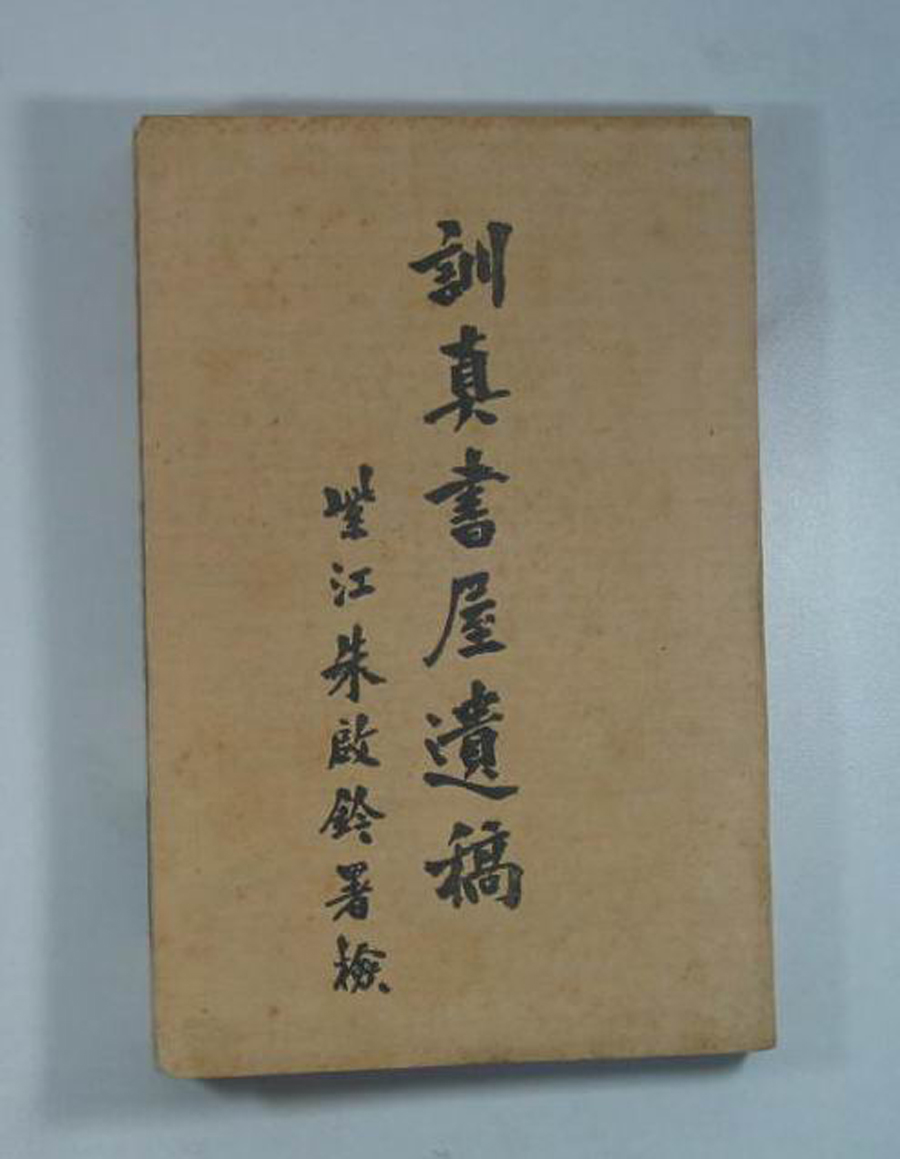 訓真書屋遺稿
紫江朱啟鈐署檢